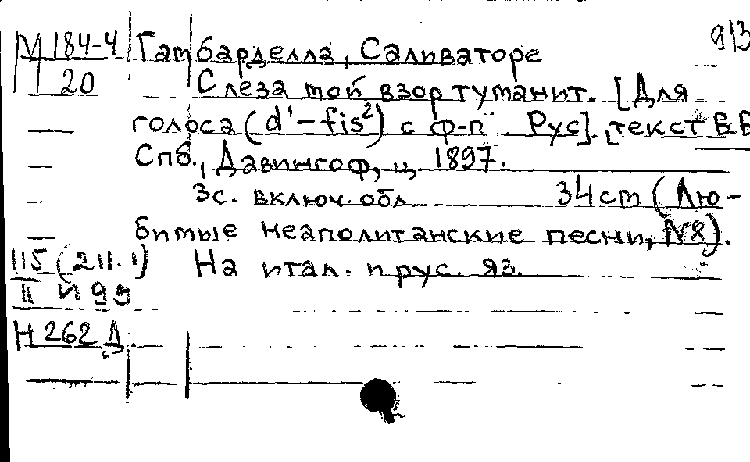 М 184-4 Гамбарделла, Саливаторе 913
20 Слеза мой взор туманит. [Для
голоса (d'-fis²) с ф-п Рус]. [текст В.В
Спб., Давингоф, ц. 1897.
3с. включ. обл 34 cm (Лю-
бимые неаполитанские песни, №8).
115 (211.1) На итал. и рус. яз.
II и 99
Н 262 Д